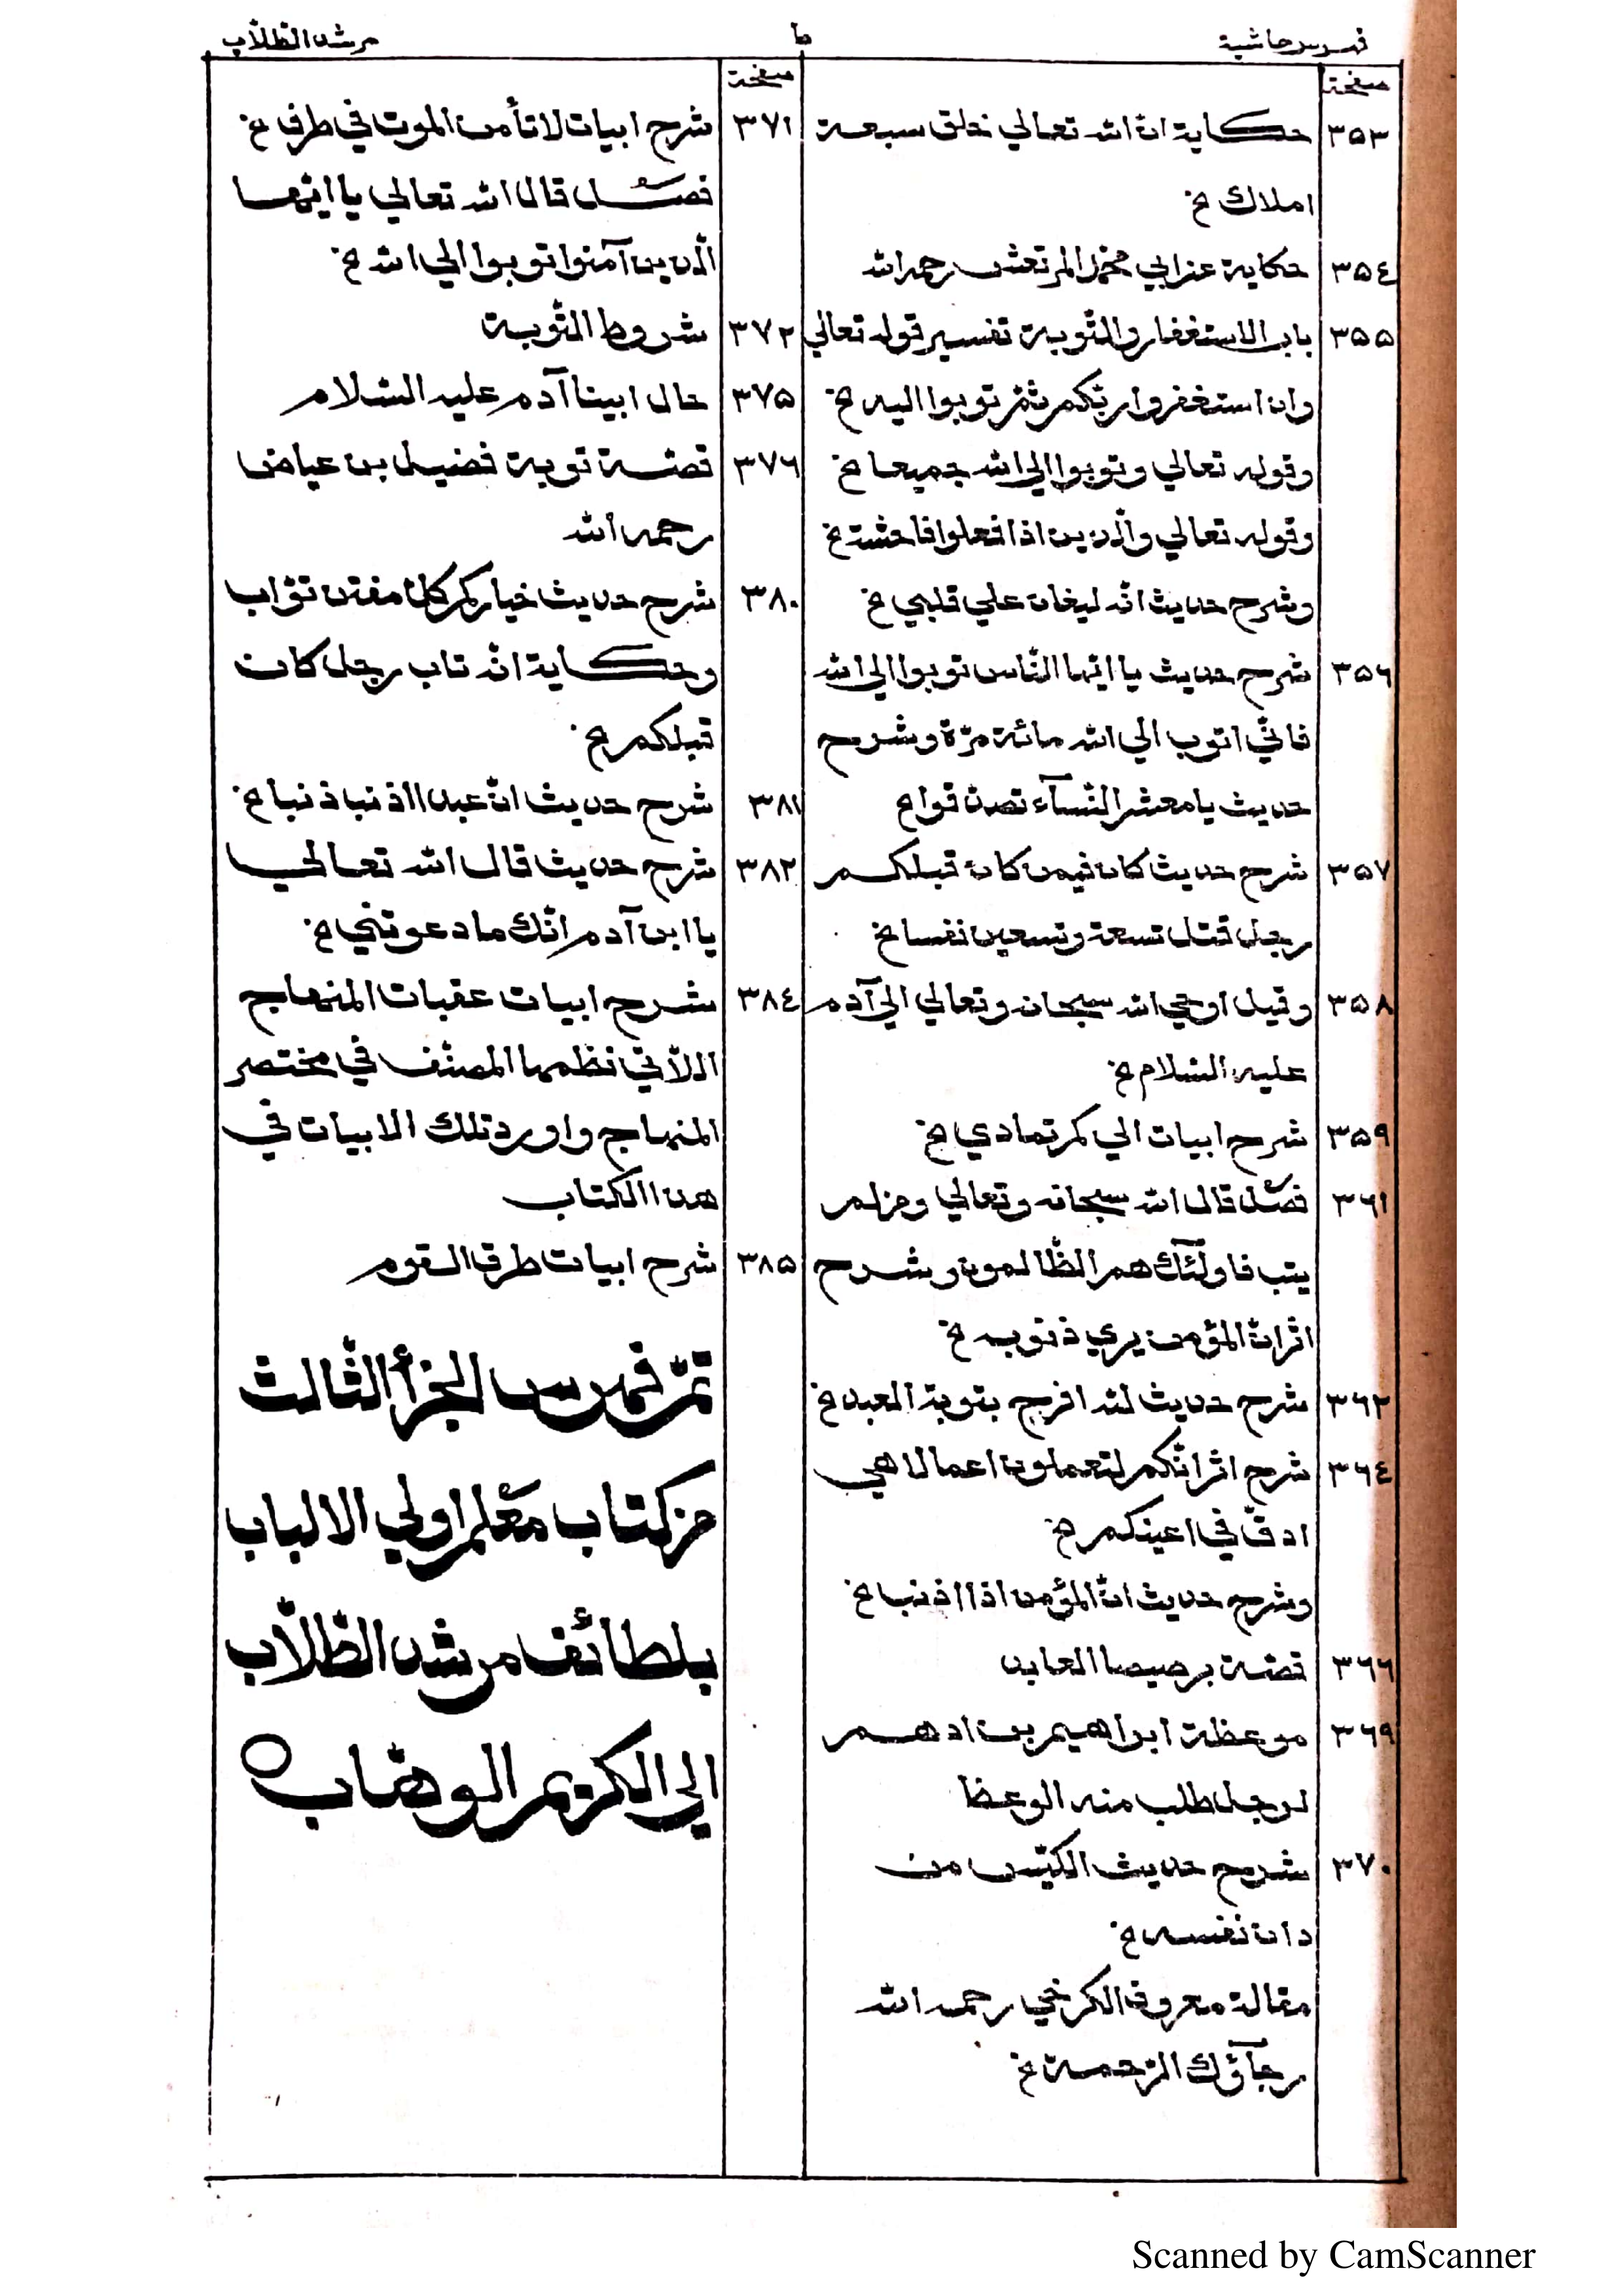 فهرس حاشية
ط
مرشد الطلّاب
صفحة
٣٥٣ حكاية انّ الله تعالي خلق سبعة
املاك خ
٣٥٤ حكاية عن ابي محمّد المرتعش رحمه الله
٣٥٥ باب الاستغفار والتّوبة تفسير قوله تعالي
وان استغفروا ربّكم ثمّ توبوا اليه خ
وقوله تعالي وتوبوا الي الله جميعا خ
وقوله تعالي والّذين اذا فعلوا فاحشة خ
وشرح حديث انّه ليغان علي قلبي خ
٣٥٦ شرح حديث يا ايّها النّاس توبوا الي الله
فانّي اتوب الي الله مائة مرّة وشرح
حديث يا معشر النّسآء تصدّقوا خ
٣٥٧ شرح حديث كان فيمن كان قبلكم
رجل قتل تسعة وتسعين نفسا خ
٣٥٨ وقيل اوحي الله سبحانه وتعالي الي آدم
عليه السّلام خ
٣٥٩ شرح ابيات الي كم تمادي خ
٣٦١ فصل قال الله سبحانه وتعالي ومن لم
يتب فاولٓئك هم الظّالمون وشرح
اثر انّ المؤمن يري ذنوبه خ
٣٦٢ شرح حديث لله افرح بتوبة العبد خ
٣٦٤ شرح اثر انّكم لتعملون اعمالا هي
ادقّ في اعينكم خ
وشرح حديث انّ المؤمن اذا اذنب خ
٣٦٦ قصّة برصيصا العابد
٣٦٩ موعظة ابراهيم بن ادهم
لرجل طلب منه الوعظ
٣٧٠ شرح حديث الكيّس من
دان نفسه خ
مقالة معروف الكرخي رحمه الله
رجآؤك الرّحمة خ
صفحة
٣٧١ شرح ابيات لا تأمن الموت في طرف خ
فصل قال الله تعالي يا ايّها
الّذين آمنوا توبوا الي الله خ
٣٧٢ شروط التّوبة
٣٧٥ حال ابينا آدم عليه السّلام
٣٧٦ قصّة توبة فضيل بن عياض
رحمه الله
٣٨٠ شرح حديث خياركم كلّ مفتن توّاب
وحكاية انّه تاب رجل كان
قبلكم خ
٣٨١ شرح حديث انّ عبدا اذنب ذنبا خ
٣٨٢ شرح حديث قال الله تعالي
يا ابن آدم انّك ما دعوتني خ
٣٨٤ شرح ابيات عقبات المنهاج
اللاتي نظمها المصنّف في مختصر
المنهاج واورد تلك الابيات في
هذا الكتاب
٣٨٥ شرح ابيات طرق القوم
تمّ فهرس الجزأ الثّالث
من كتاب معلم اولي الالباب
بلطائف مرشد الطّلّاب
الي الكريم الوهّاب
Scanned by CamScanner